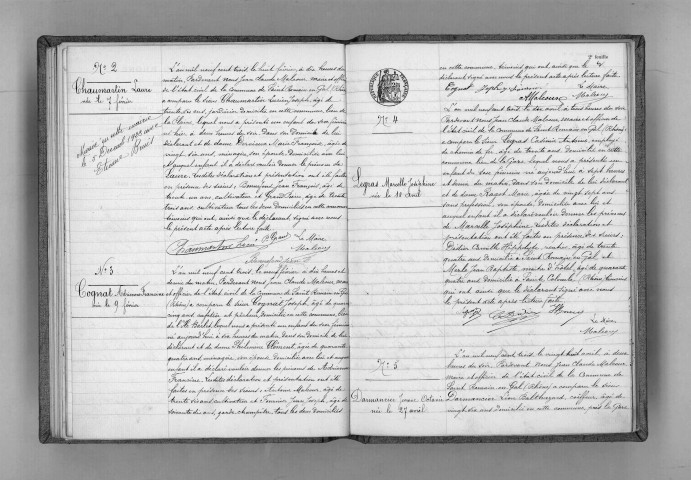 N° 2
Chaumarton Laure
née le 7 février
Mariée en cette mairie
L'an mil neuf cent trois le huit février, à dix heures du
matin, Pardevant nous Jean Claude Malour maire et officier
de l'état civil de la Commune de Saint Romain en Gal (Rhône)
a comparu le sieur Chaumarton Lucien Joseph, âgé de
trente six ans, jardinier, domicilié en cette commune, lieu de
la Plaine, lequel nous a présenté un enfant du sexe féminin
né hier à deux heures du soir dans son domicile de lui
déclarant et de dame Marie Françoise, âgée de
vingt six ans, ménagère, son épouse, domiciliée avec lui et
auquel enfant il a déclaré vouloir donner le prénom de
Laure. Lesdites déclaration et présentation ont été faites
en présence des sieurs Jean François, âgé de
trente un ans, cultivateur et Grand Jean, âgé de vingt
trois ans, cultivateur tous les deux domiciliés en cette commune
témoins qui ont, ainsi que le déclarant signé avec nous
le présent acte après lecture faite.
Le Maire
Malour
N° 3
Cognat Adrienne Francine
née le 9 février
L'an mil neuf cent trois, le neuf février, à dix heures et
demie du matin, Pardevant nous Jean Claude Malour, maire
et officier de l'état civil de la Commune de Saint Romain en Gal
(Rhône) a comparu le sieur Cognat Joseph, âgé de
cinq ans, cafetier et pêcheur, domicilié en cette commune, lieu
de lequel nous a présenté un enfant du sexe féminin
né aujourd'hui à six heures du matin, dans son domicile de lui
déclarant et de dame Philomène Clément, âgée de quarante
quatre ans, ménagère, son épouse domiciliée avec lui et auquel
enfant il a déclaré vouloir donner les prénoms de Adrienne
Francine. Lesdites déclaration et présentation ont été
faites en présence des sieurs Antoine Malour, âgé de
trente six ans cultivateur et Jean Joseph, âgé de
soixante dix ans, garde champêtre, tous les deux domiciliés
7 feuille
en cette commune, témoins qui ont ainsi que le
déclarant signé avec nous le présent acte après lecture faite
Cognat Joseph
Le Maire
Malour
N° 4
Legras Marcelle Joséphine
née le 10 avril
L'an mil neuf cent trois le dix avril à trois heures du soir
Pardevant nous Jean Claude Malour, maire et officier de
l'état civil de la Commune de Saint Romain en Gal, (Rhône)
a comparu le sieur Legras Casimir Antoine employé
de chemin de fer, âgé de trente ans domicilié en cette
commune lieu de la Gare lequel nous a présenté un
enfant du sexe féminin né aujourd'hui à sept heures
et demie du matin, dans son domicile de lui déclarant
et de dame Ragot Marie, âgée de vingt sept ans
sans profession, son épouse, domiciliée avec lui et
auquel enfant il a déclaré vouloir donner les prénoms
de Marcelle Joséphine. Lesdites déclaration et
présentation ont été faites en présence des sieurs
Didier Camille Hippolyte, rentier, âgé de trente
quatre ans domicilié à Saint Romain en Gal, et
Merle Jean Baptiste maître d'hôtel, âgé de quarante
quatre ans, domicilié à Sainte Colombe, (Rhône) témoins
qui ont ainsi que le déclarant signé avec nous
le présent acte après lecture faite
Le Maire
Malour
N° 5
Darmancier Jeanne Octavie
née le 27 avril
L'an mil neuf cent trois le vingt huit avril, à deux
heures du soir Pardevant nous Jean Claude Malour
maire et officier de l'état civil de la Commune de
Saint Romain en Gal (Rhône) a comparu le sieur
Darmancier Léon Balthazard, coiffeur, âgé de
vingt six ans domicilié en cette commune, près la Gare